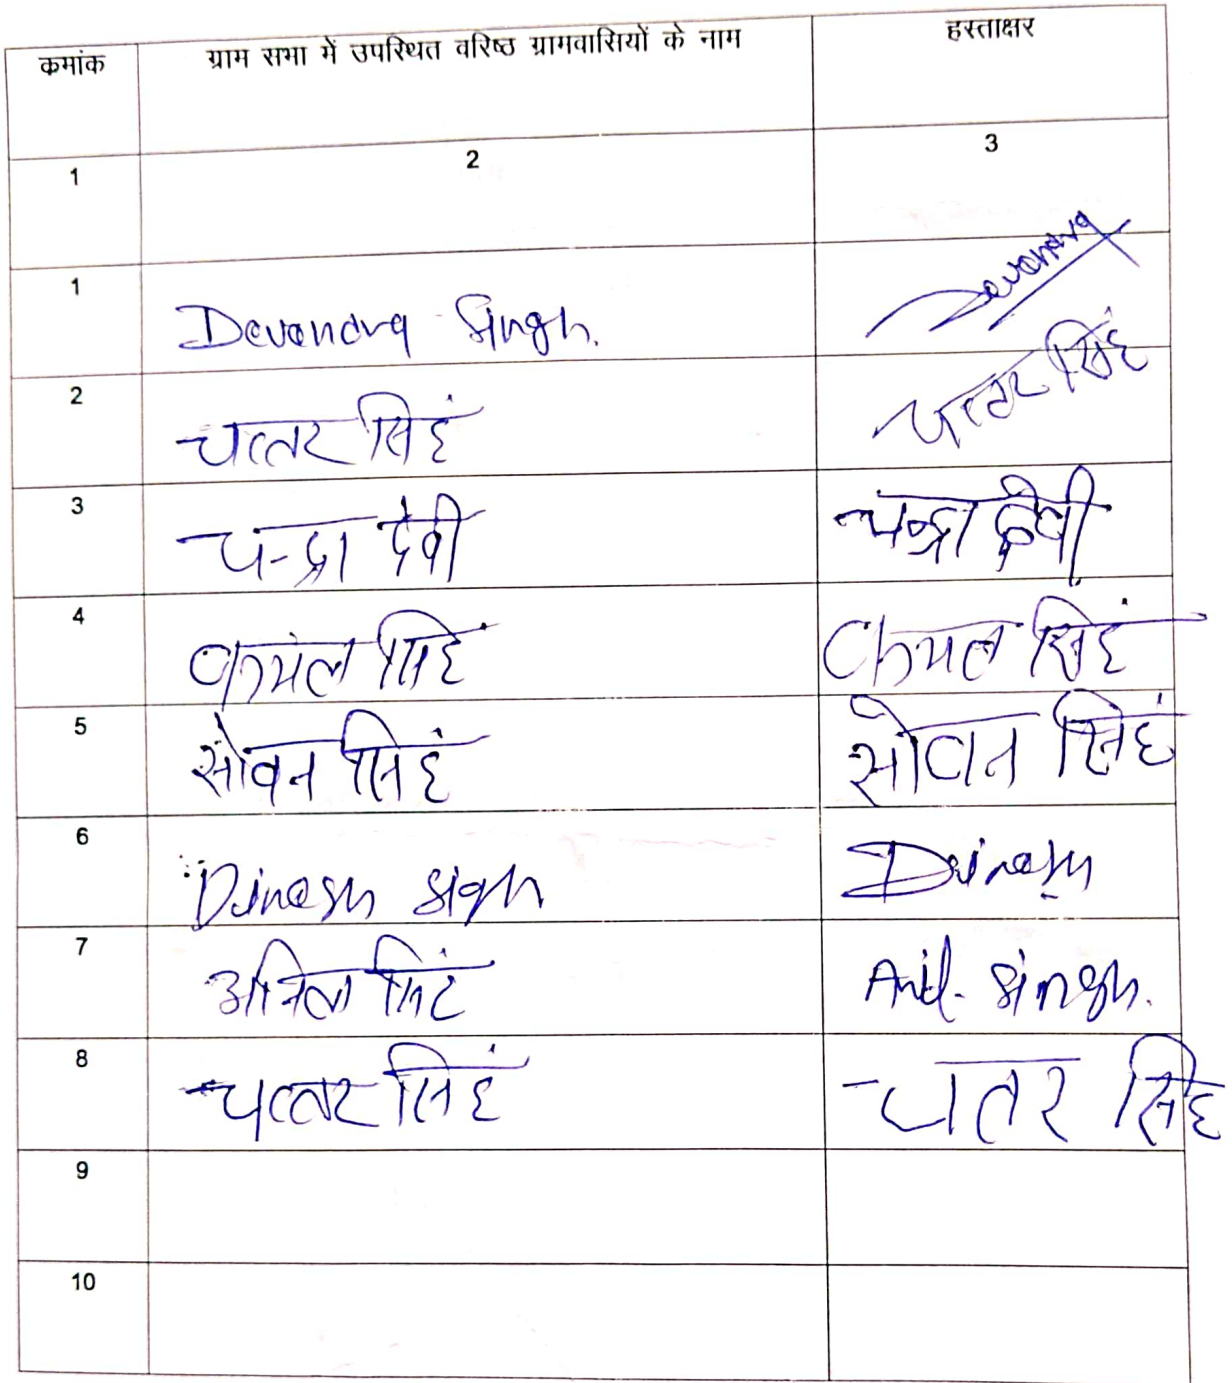 कमांक ग्राम सभा में उपस्थित वरिष्ठ ग्रामवासियों के नाम हस्ताक्षर
1 2 3
1 Devendra Singh. Devendra
2 चत्तर सिहं चत्तर सिंह
3 चन्द्रा देवी चन्द्रा देवी
4 कमल सिहं कमल सिहं
5 सोवन सिहं सोवन सिहं
6 Dinesh sigh Dinesh
7 अनिल सिहं Anil. Singh.
8 चत्तर सिहं चतर सिंह
9
10